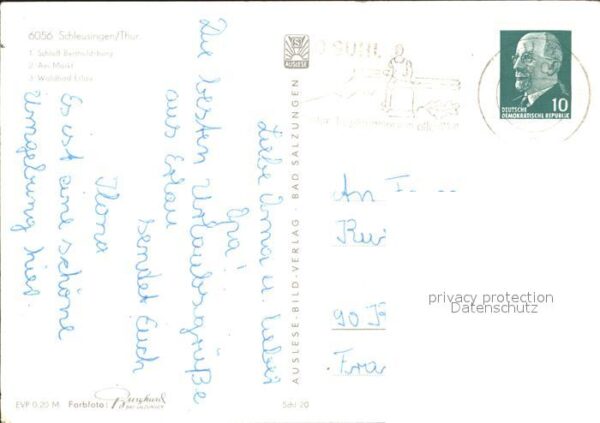 6056 Schleusingen/Thür.
1. Schloß Bertholdsburg
2. Am Markt
3. Waldbad Erlau
AUSLESE
SUHL
DEUTSCHE
DEMOKRATISCHE REPUBLIK
10
Liebe Oma u. lieber
Opa!
Die besten Urlaubsgrüße
aus Erlau
sendet Euch
Ilona
Es ist eine schöne
Umgebung hier.
AUSLESE-BILD-VERLAG - BAD SALZUNGEN
An
90
privacy protection
Datenschutz
EVP 0.20 M Farbfoto: Burghard
BAD SALZUNGEN
Schl 20